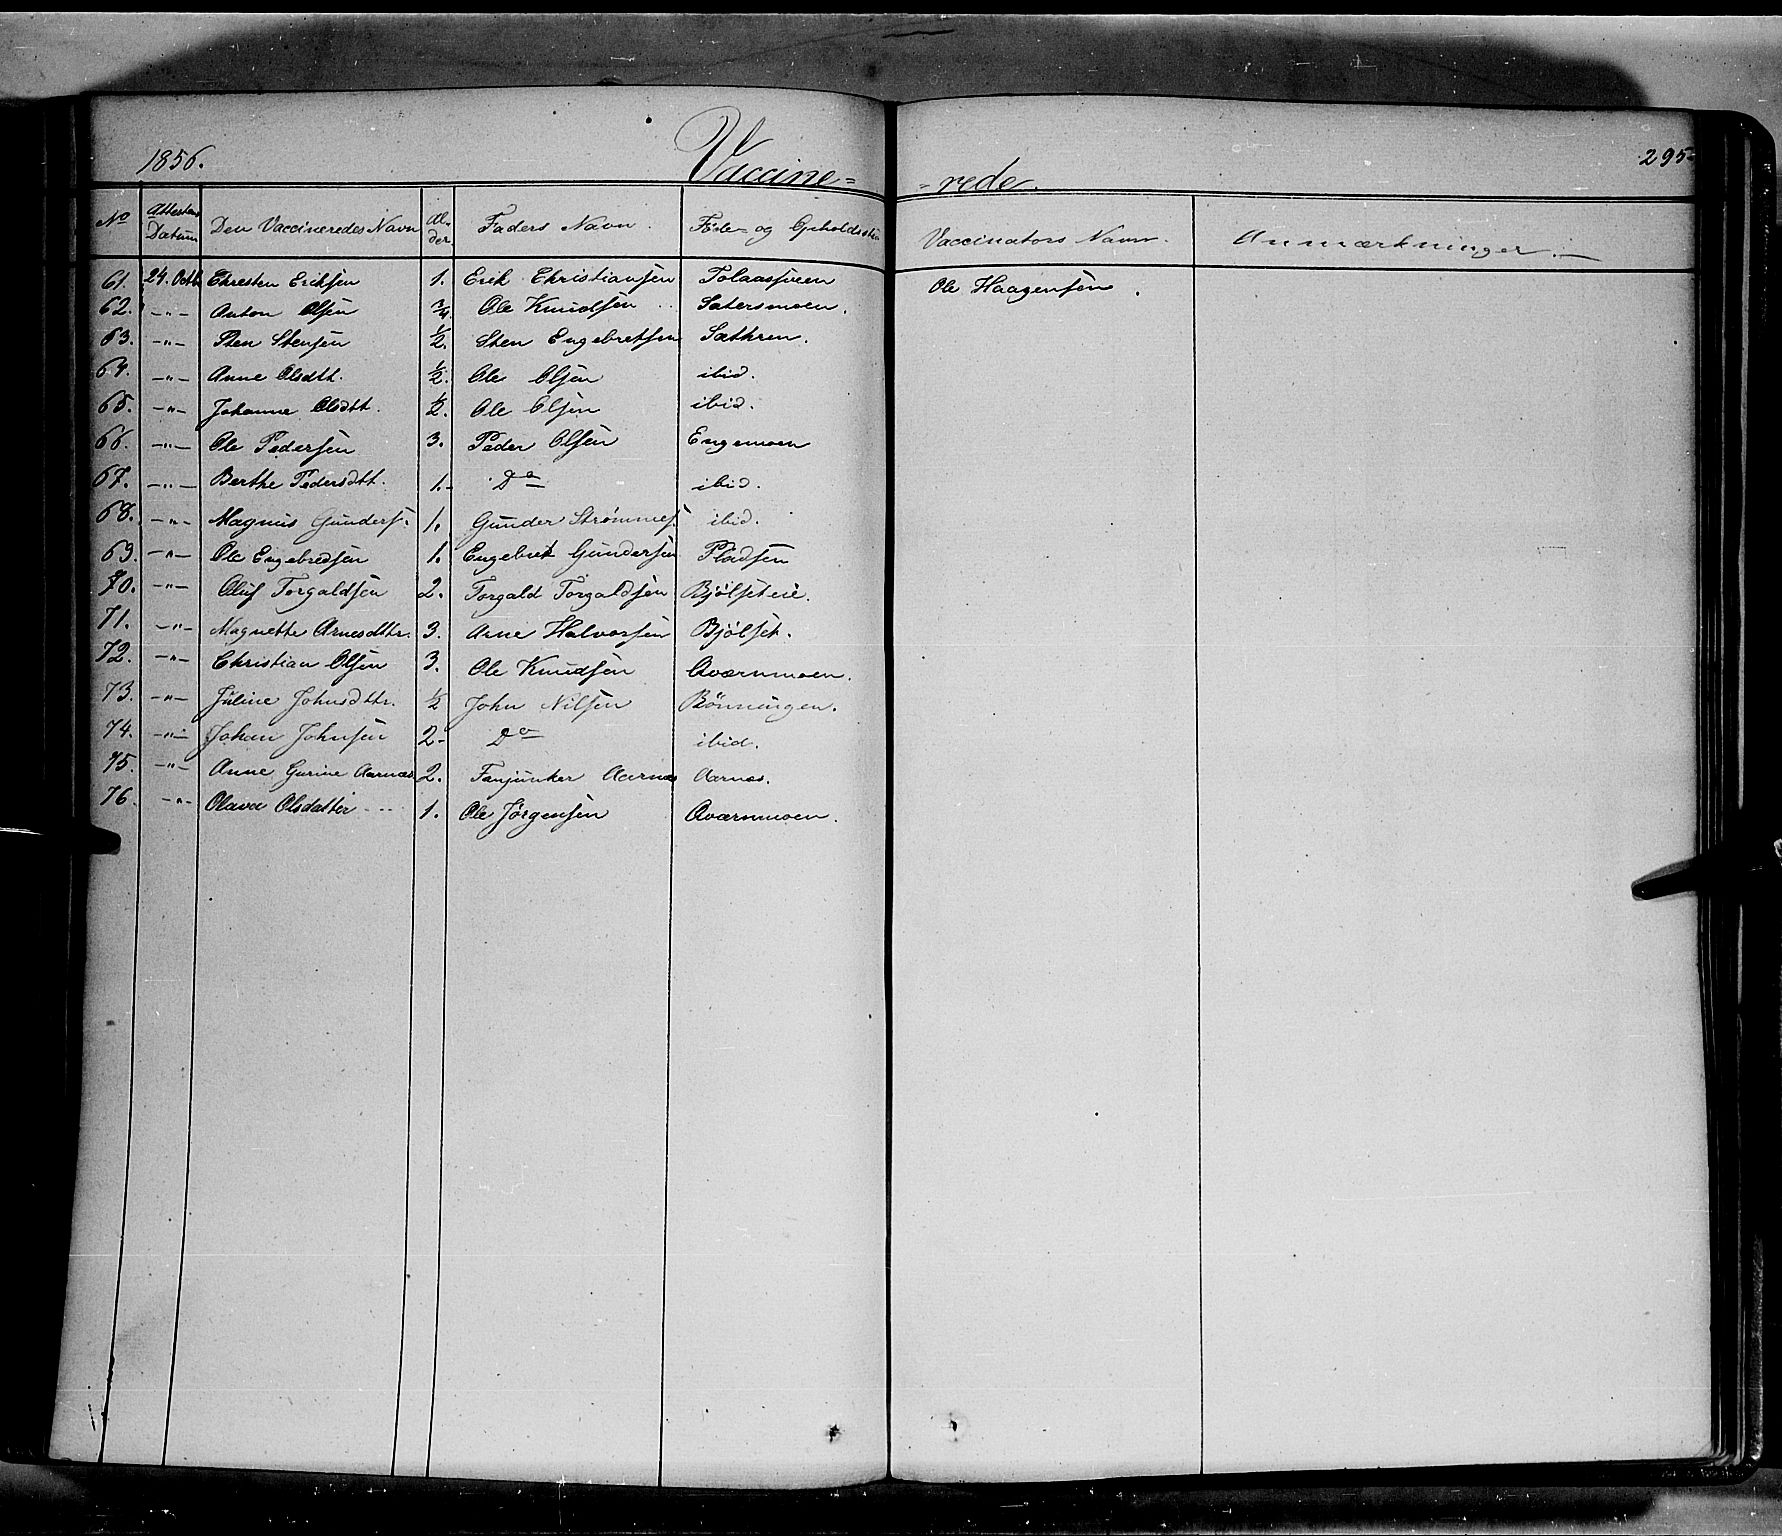 1856. Vaccine= =rede. 295.
No Attestens Datum Den Vaccineredes Navn Alder Faders Navn. Føde- og Opholdssted Vaccinators Navn. Anmærkninger.
61. 24. Octb. Christen Eriksen 1. Erik Christiansen Ole Haagensen.
62. -"- Anton Olsen 3/4. Ole Knudsen Sætersmoen.
63. -"- Sten Stensen 1/2. Sten Engebretsen Sæthren.
64. -"- Anne Olsdtt. 1/2. Ole Olsen ibid.
65. -"- Johanne Olsdtt. 1/2. Ole Olsen ibid.
66. -"- Ole Pedersen 3. Peder Olsen Engemoen
67. -"- Berthe Pedersdtt. 1.- Do ibid.
68. -"- Magnus Gunders. 1. Gunder Strømmes. ibid.
69. -"- Ole Engebredsen 1. Engebret Gundersen Pladsen
70. -"- Oluf Torgaldsen 2. Torgald Torgaldsen Bjølseteie.
71. -"- Magnette Arnesdttr. 3. Arne Halvorsen Bjølset.
72. -"- Christian Olsen 3. Ole Knudsen Qværnmoen.
73. -"- Juline Johnsdttr. 1/2 John Nilsen Bönningen.
74. -"- Johan Johnsen 2- Do ibid.
75. -"- Anne Gurine Aarnæs 2. Fanjunker Aarnæs Aarnæs.
76. -"- Olava Olsdatter 1. Ole Jørgensen Qværnmoen.